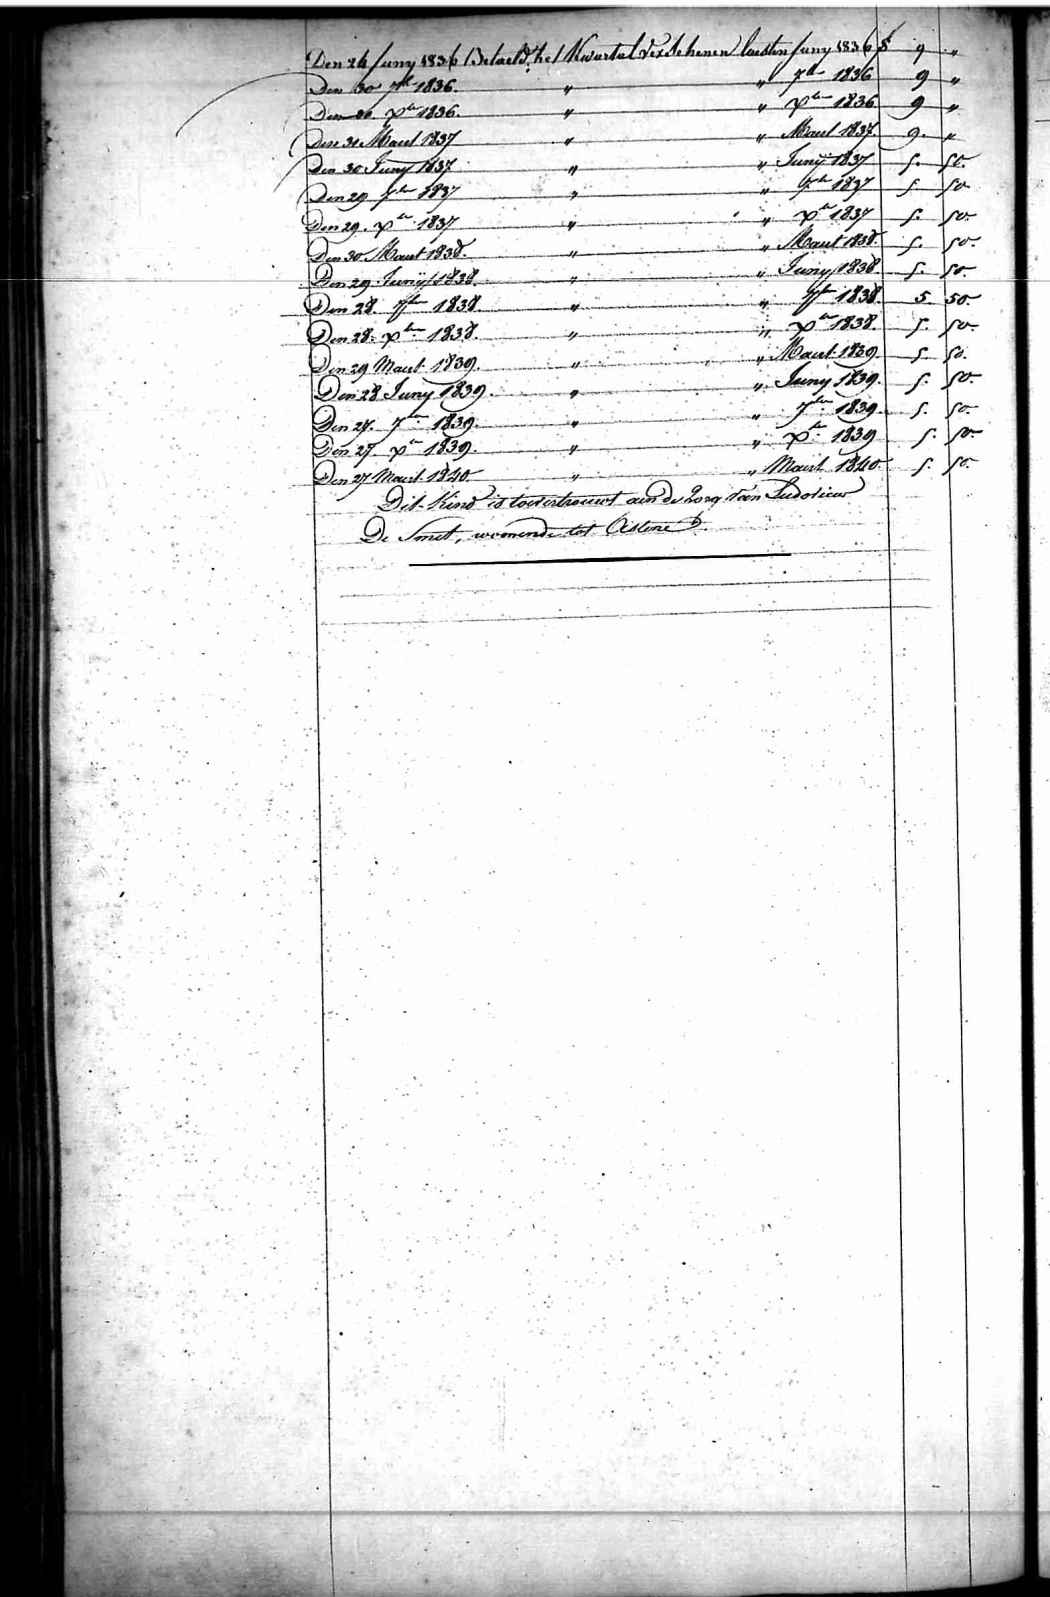 Den 24 Juny 1836 Betaeld het Kwartal verschenen laesten Juny 1836 f 9 "
Den 30 7bre 1836. " " 7bre 1836 9 "
Den 26 Xbre 1836. " " Xbre 1836 9 "
Den 31 Maert 1837 " " Maert 1837. 9. "
Den 30 Juny 1837 " " Juny 1837 5. 50.
Den 29 7bre 1837 " " 7bre 1837 5 50
Den 29. Xbre 1837 " " Xbre 1837 5. 50.
Den 30 Maert 1838. " " Maert 1838. 5. 50.
Den 29 Juny 1838. " " Juny 1838 5. 50.
Den 28. 7bre 1838. " " 7bre 1838. 5 50.
Den 28. Xbre 1838. " " Xbre 1838. 5. 50.
Den 29 Maert 1839. " " Maert 1839 5 50.
Den 28 Juny 1839. " " Juny 1839. 5. 50.
Den 27. 7bre 1839. " " 7bre 1839. 5. 50.
Den 27 Xbre 1839. " " Xbre 1839 5. 50.
Den 27 Maert 1840. " " Maert 1840 5. 50.
Dit Kind is toevertrouwt aen de Zorg van Ludovicus
De Smet, woonende tot Astene